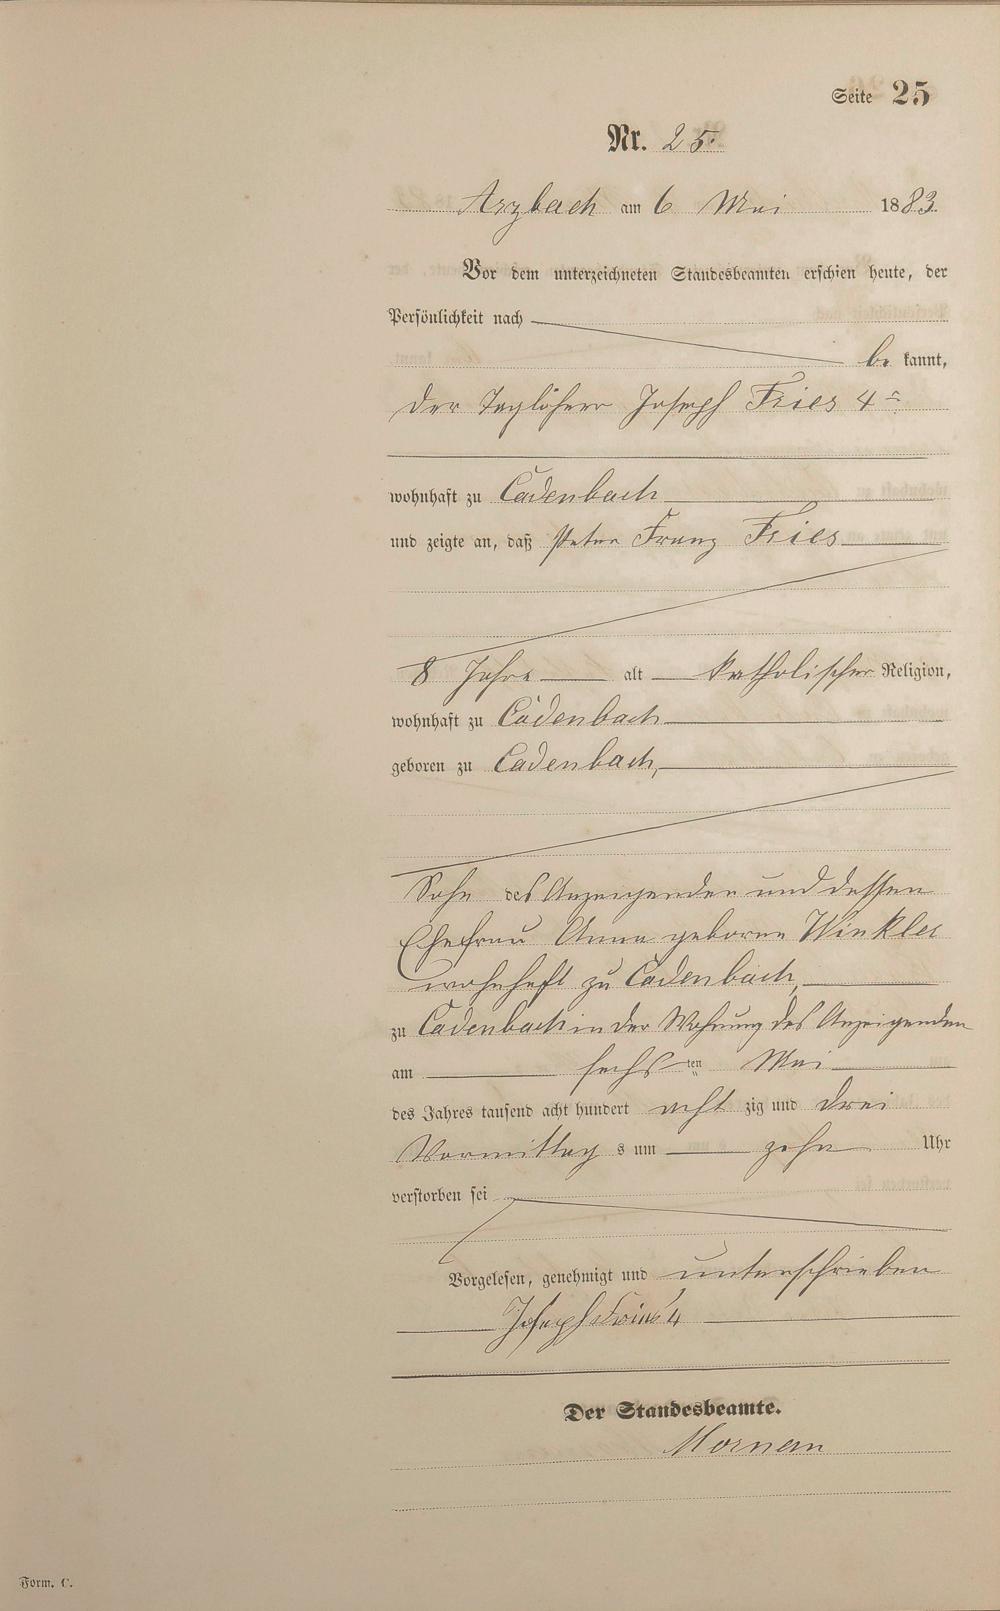 Seite 25
Nr. 25.
Arzbach am 6 Mai 1883.
Vor dem unterzeichneten Standesbeamten erschien heute, der
Persönlichkeit nach
be kannt,
der Taglöhner Joseph Fries 4r
wohnhaft zu Cadenbach
und zeigte an, daß Peter Franz Fries
8 Jahre alt katholischer Religion,
wohnhaft zu Cadenbach
geboren zu Cadenbach,
Sohn des Anzeigenden und dessen
Ehefrau Anna geborne Winkler
wohnhaft zu Cadenbach,
zu Cadenbach in der Wohnung des Anzeigenden
am sechs ten Mai
des Jahres tausend acht hundert acht zig und drei
Vormittag s um zehn Uhr
verstorben sei
Vorgelesen, genehmigt und unterschrieben
Joseph Fries 4
Der Standesbeamte.
Form. C.